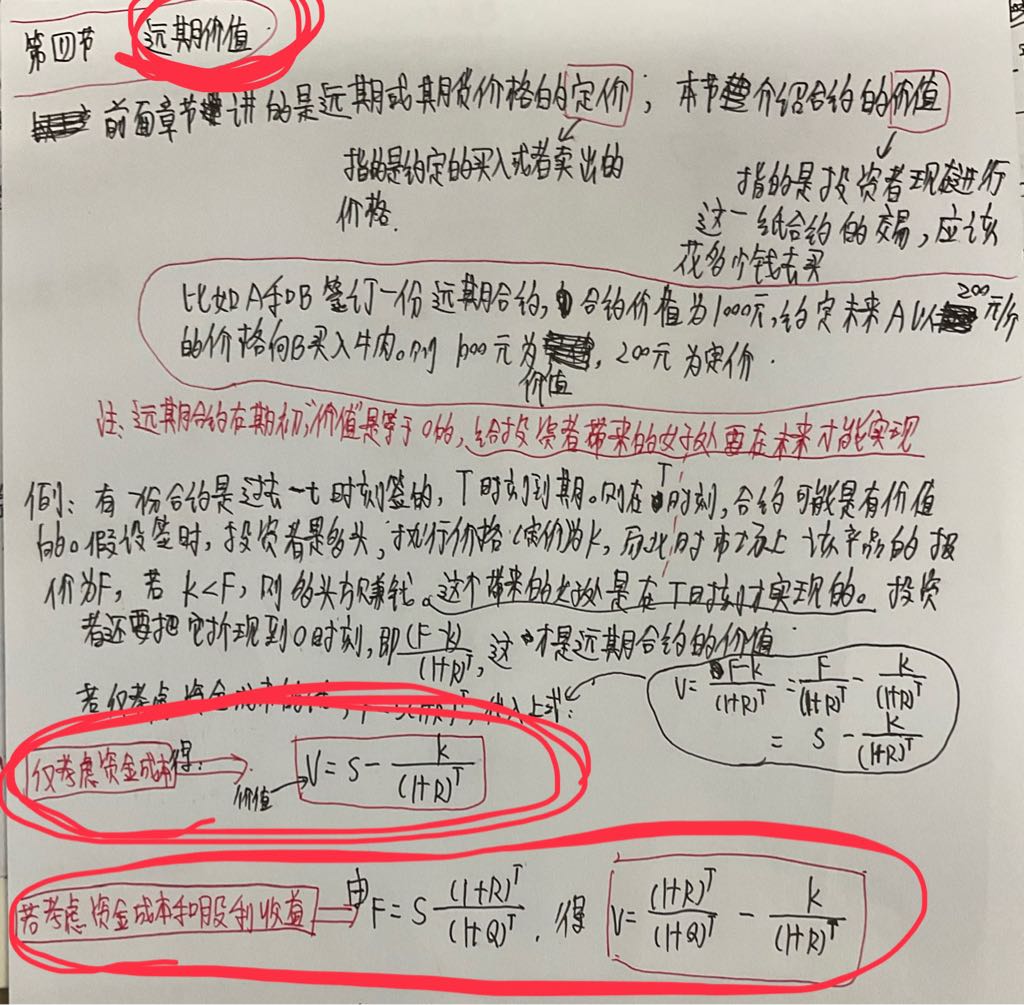 第四节 远期价值
前面章节讲的是远期或期货价格的定价；本节介绍合约的价值
指的是约定的买入或者卖出的
价格.
指的是投资者现在进行
这一纸合约的交易，应该
花多少钱去买
比如A和B签订一份远期合约，合约价值为1000元，约定未来A以200元/份
的价格向B买入牛肉。则1000元为价值，200元为定价.
注：远期合约在期初"价值"是等于0的，给投资者带来的好处要在未来才能实现
例：有一份合约是过去-t时刻签的，T时刻到期。则在T时刻，合约可能是有价值
的。假设签时，投资者是多头，执行价格（定价为K，而此时市场上该产品的报
价为F，若K<F，则多头方赚钱。这个带来的好处是在T时刻才实现的。投资
者还要把它折现到0时刻，即(F-K)/(1+R)^T，这才是远期合约的价值
若仅考虑资金成本的 代入上式：
V=F-K/(1+R)^T=F/(1+R)^T-K/(1+R)^T
=S-K/(1+R)^T
仅考虑资金成本得：
价值
V=S-K/(1+R)^T
若考虑资金成本和股利收益 由F=S(1+R)^T/(1+Q)^T，得 V=(1+R)^T/(1+Q)^T-K/(1+R)^T